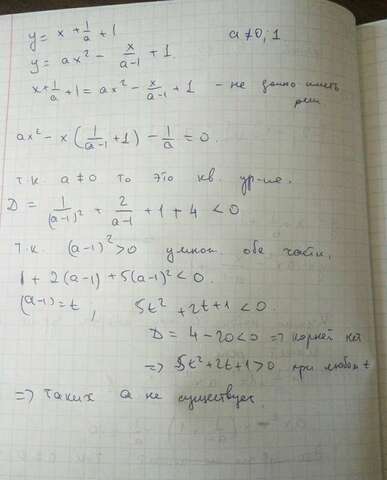 y = x + 1/a + 1    a ≠ 0; 1
y = ax² - x/(a-1) + 1.
x + 1/a + 1 = ax² - x/(a-1) + 1 - не должно иметь
реш
ax² - x(1/(a-1) + 1) - 1/a = 0.
т.к. a ≠ 0 то это кв. ур-ие.
D = 1/(a-1)² + 2/(a-1) + 1 + 4 < 0
т.к. (a-1)² > 0 умнож обе части,
1 + 2(a-1) + 5(a-1)² < 0.
(a-1) = t, 5t² + 2t + 1 < 0.
D = 4 - 20 < 0 => корней нет
=> 5t² + 2t + 1 > 0 при любом t
=> таких a не существует